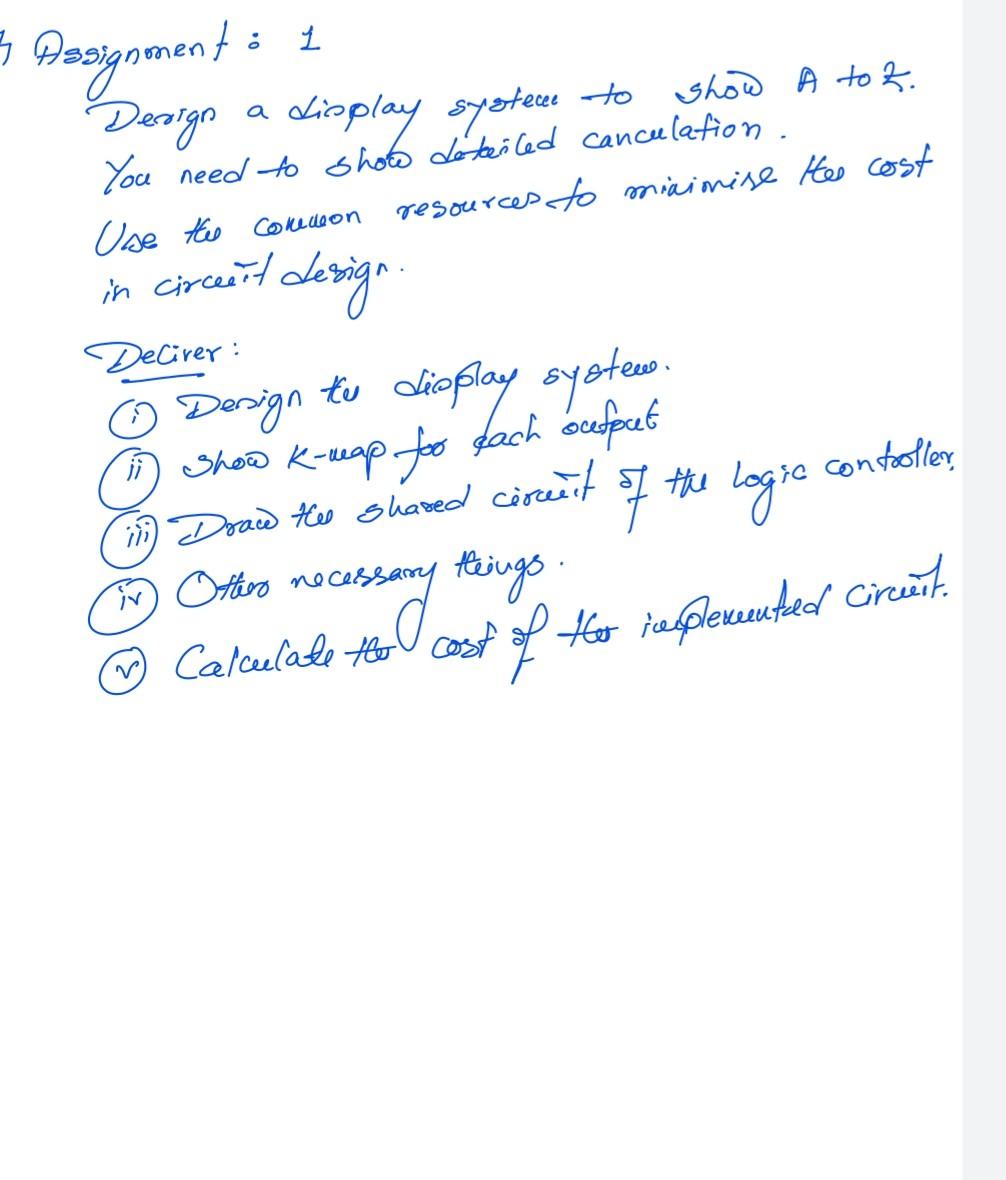 Assignment : 1
Design a display system to show A to Z.
You need to show detailed canculation.
Use the common resources to minimise the cost
in circuit design.
Deliver :
(i) Design the display system.
(ii) Show K-map for each output
(iii) Draw the shared circuit of the logic controller.
(iv) Others necessary things.
(v) Calculate the cost of the implemented circuit.